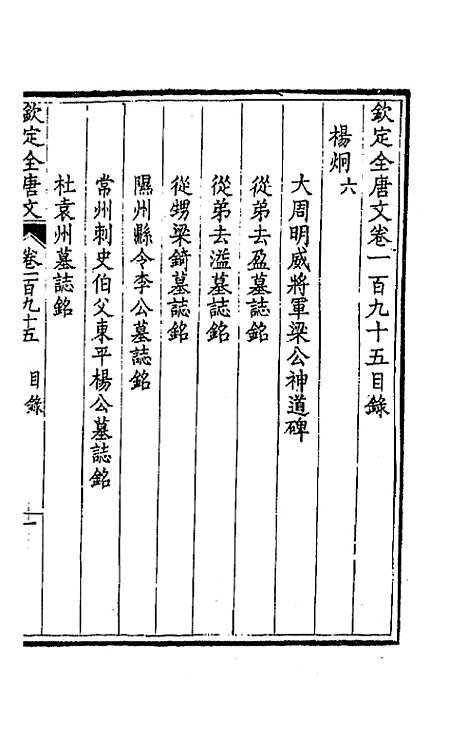 欽定全唐文卷一百九十五目錄
楊炯六
大周明威將軍梁公神道碑
從弟去盈墓誌銘
從弟去溢墓誌銘
從甥梁錡墓誌銘
隰州縣令李公墓誌銘
常州刺史伯父東平楊公墓誌銘
杜袁州墓誌銘
欽定全唐文 卷一百九十五 目錄 一